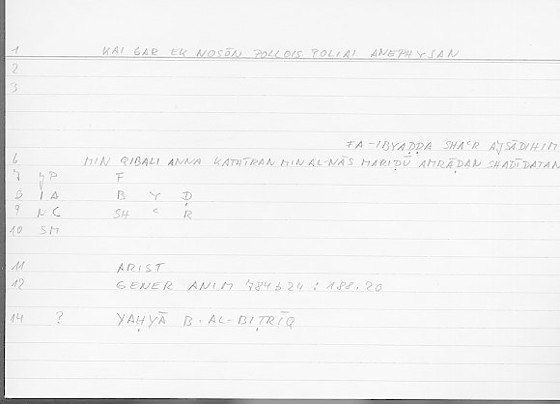 1 KAI GAR EK NOSŌN POLLOIS POLIAI ANEPHYSAN
2
3
FA-IBYAḌḌA SHAʿR AJSĀDIHIM
6 MIN QIBALI ANNA KATHĪRAN MIN AL-NĀS MARIḌŪ AMRĀḌAN SHADĪDATAN
7 YP F
8 IA B Y Ḍ
9 NC SH ʿ R
10 SM
11 ARIST
12 GENER ANIM 784b24 : 188.20
14 ? YAḤYĀ B. AL-BIṬRĪQ